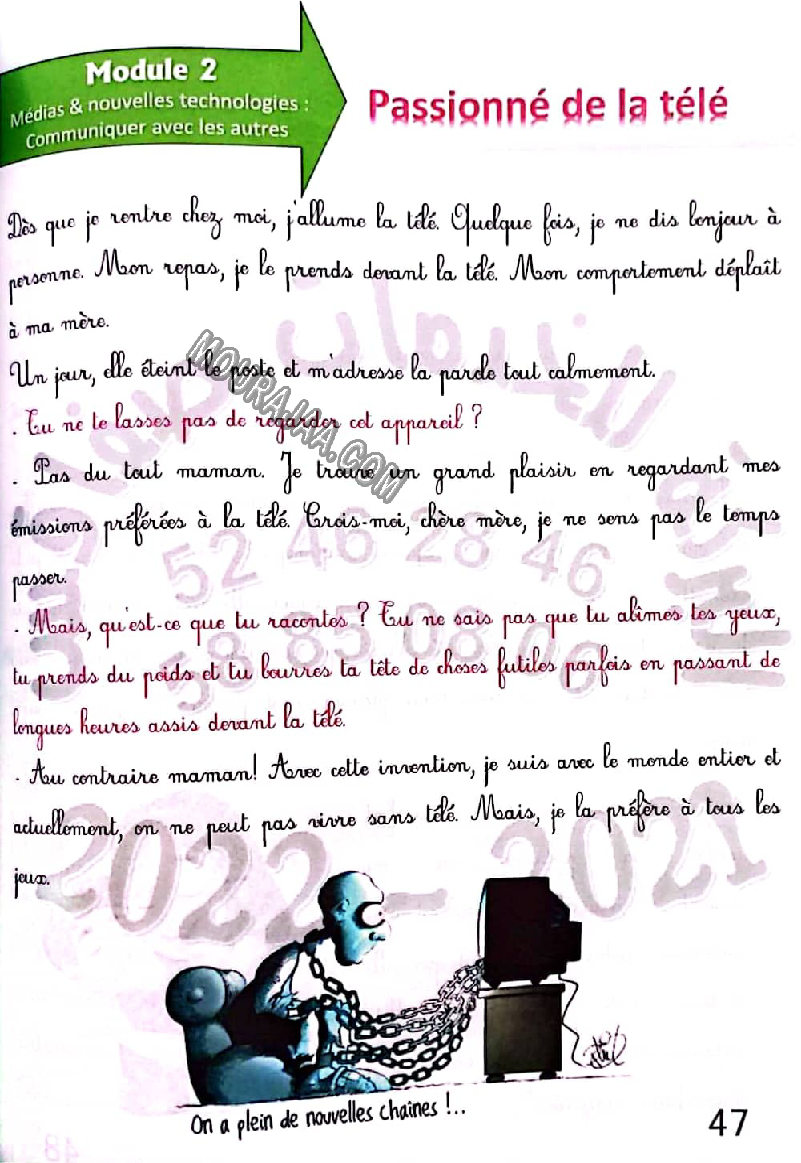 Module 2
Médias & nouvelles technologies :
Communiquer avec les autres
Passionné de la télé
Dès que je rentre chez moi, j'allume la télé. Quelque fois, je ne dis bonjour à
personne. Mon repas, je le prends devant la télé. Mon comportement déplaît
à ma mère.
Un jour, elle éteint le poste et m'adresse la parole tout calmement.
. Tu ne te lasses pas de regarder cet appareil ?
. Pas du tout maman. Je trouve un grand plaisir en regardant mes
émissions préférées à la télé. Crois-moi, chère mère, je ne sens pas le temps
passer.
- Mais, qu'est-ce que tu racontes ? Tu ne sais pas que tu abîmes tes yeux,
tu prends du poids et tu bourres ta tête de choses futiles parfois en passant de
longues heures assis devant la télé.
- Au contraire maman! Avec cette invention, je suis avec le monde entier et
actuellement, on ne peut pas vivre sans télé. Mais, je la préfère à tous les
jeux.
MOURAJAA.COM
52 46 28 46
58 85 08 06
2022 - 2021
On a plein de nouvelles chaînes !..
47